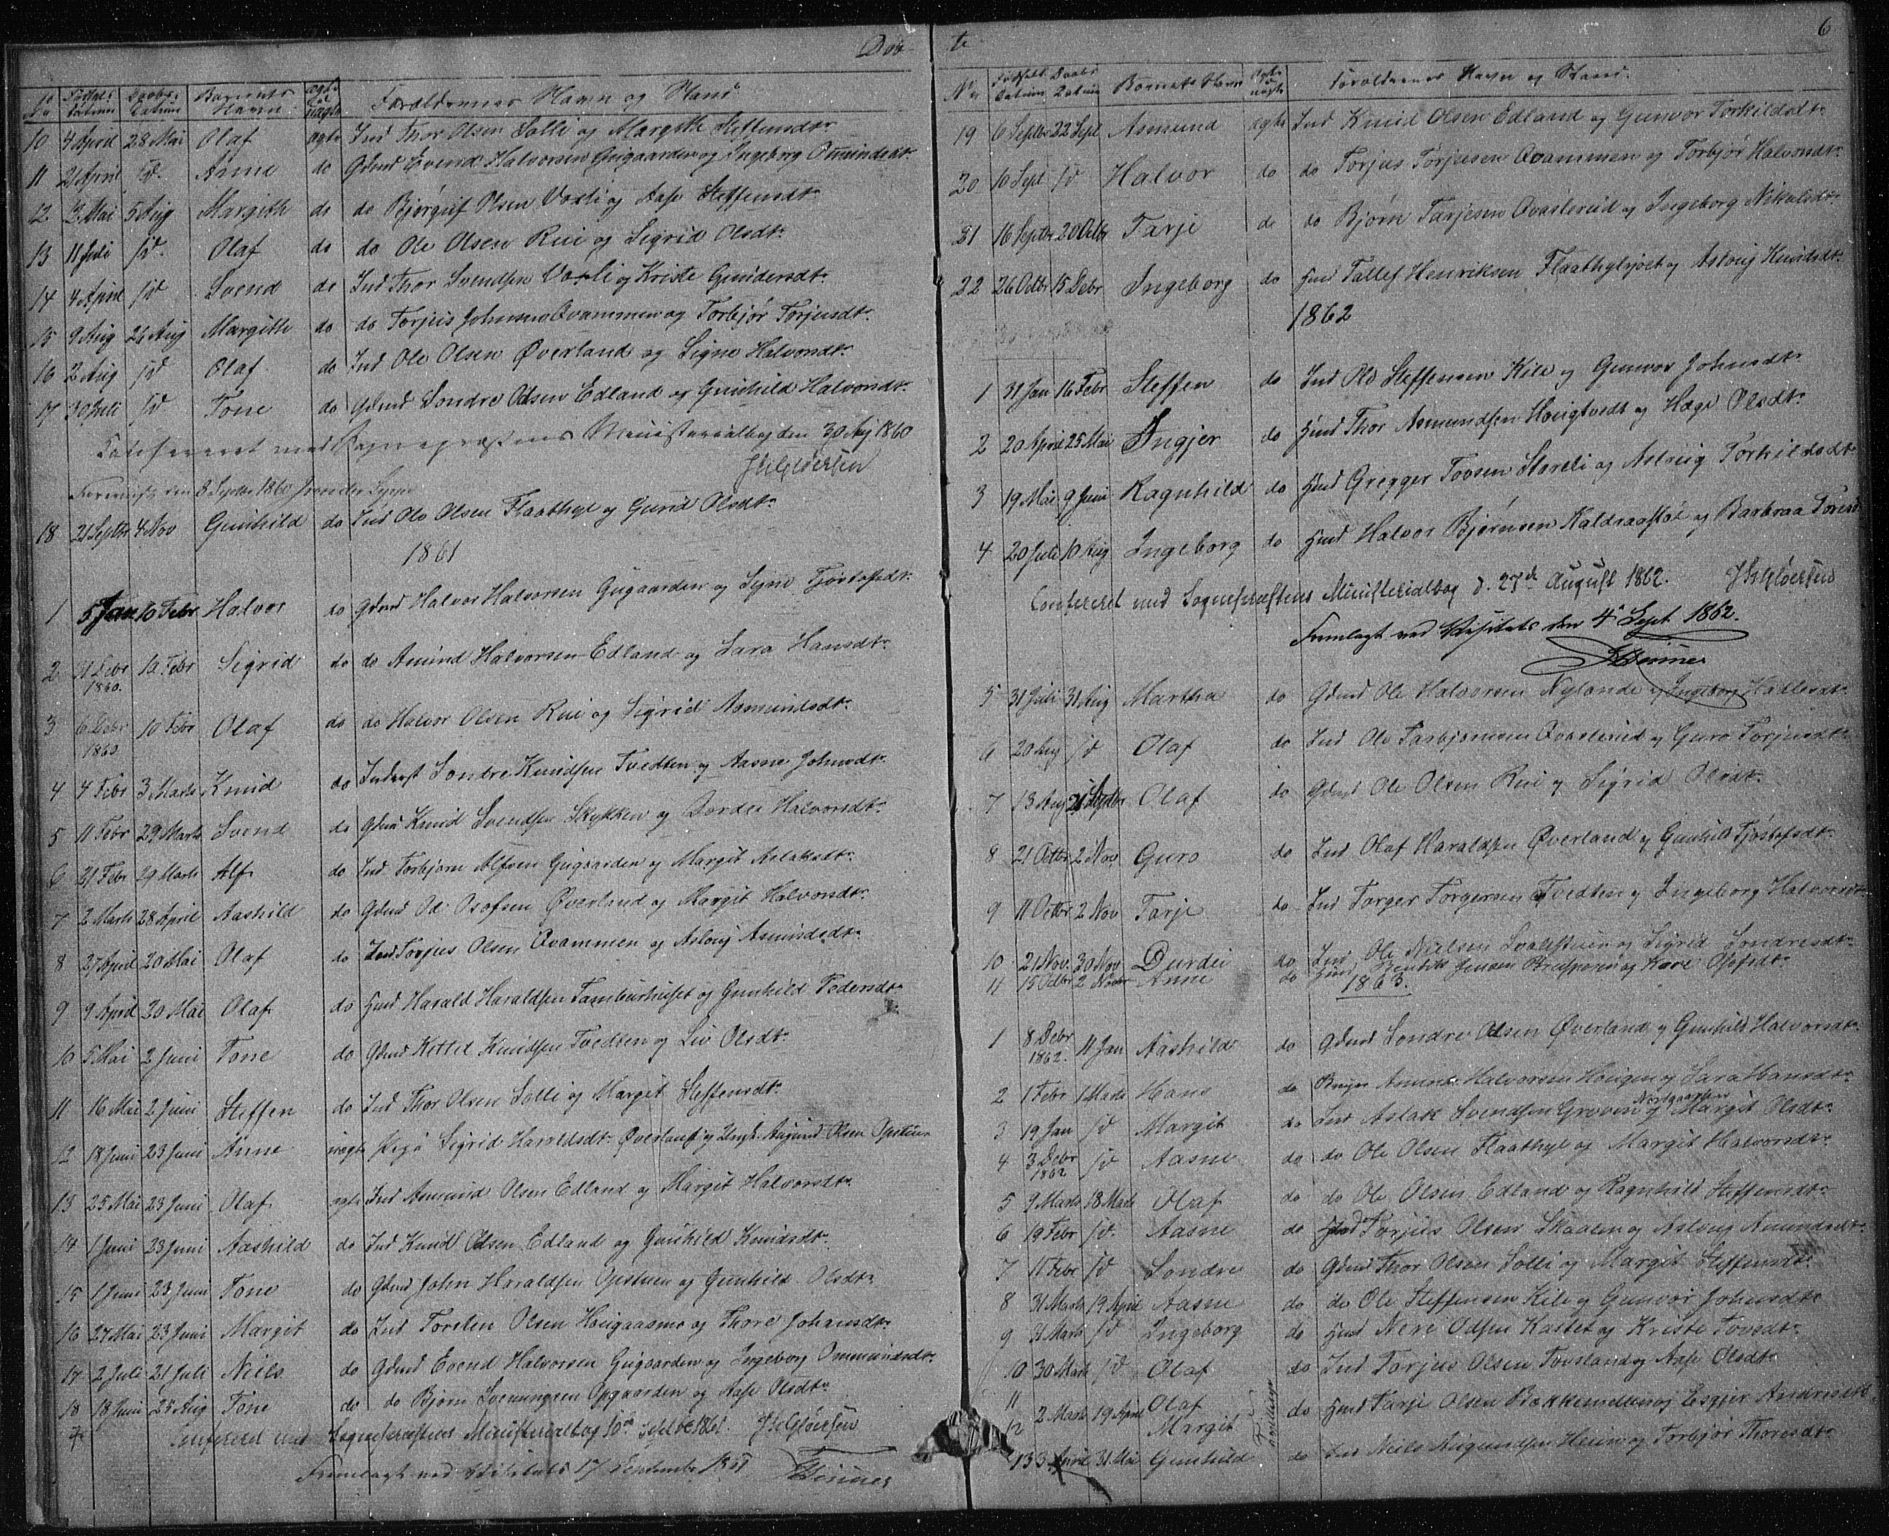 Døb-
No Fødsels Datum Daabs Datum Barnets Navn ægte eller uægte Forældrenes Navn og Stand
10 4 April 28 Mai Olaf ægte Ind Thor Olsen Solli og Margith Steffensdtr
11 21 April Sd. Anne do Gdmd Evend Halvorsen Gugaarden og Ingeborg Omundsdtr
12 3 Mai 5 Aug Margith do do Bjørguf Olsen Vaali og Aase Steffensdtr
13 11 Juli Sd. Olaf do do Ole Olsen Rui og Sigrid Olsdtr
14 4 April Sd Svend do Ind Thor Svendsen Vaali og Kriste Gundersdtr
15 9 Aug 26 Aug Margith do do Torjus Johnsen Qvammen og Torbjør Torjusdtr
16 2 Aug Sd Olaf do Ind Ole Olsen Øverland og Signe Halvorsdtr
17 30 Juli Sd Tone do Gdmd Sondre Olsen Edland og Gunhild Halvorsdtr
Confereret med Sognepræstens Ministerialbog den 30 Aug 1860
den 8 Septbr 1860
18 21 Septbr 4 Nov Gunhild do Ind Ole Olsen Flaathyl og Gurid Olsdtr
1861
1 5 Jan 10 Febr Halvor do Gdmd Halvor Halvorsen Gugaarden og Signe Tjøstofsdtr
2 11 Debr 1860. 10 Febr Sigrid do do Amund Halvorsen Edland og Sara Hansdtr
3 6 Debr 1860 10 Febr Olaf do do Halvor Olsen Rui og Sigrid Asmundsdtr
4 4 Febr 3 Marts Knud do Inderst Sondre Knudsen Tvedten og Aasne Johnsdtr
5 11 Febr 29 Marts Svend do Gdmd Knud Svendsen Skykken og Dordei Halvorsdtr
6 21 Febr 29 Marts Alf do Ind Torbjørn Alfsen Gugaarden og Margit Aslaksdtr
7 2 Marts 28 April Aashild do Gdmd Ol Olofsen Øverland og Margit Halvorsdtr
8 27 April 20 Mai Olaf do Ind Torjus Olsen Qvammen og Aslaug Asmundsdtr
9 9 April 20 Mai Olaf do Hmd Harald Haraldsen Tamburhuset og Gunhild Pedersdtr
10 5 Mai 2 Juni Tone do Gdmd Kettel Knudsen Tvedten og Liv Olsdtr
11 16 Mai 2 Juni Steffen do Ind Thor Olsen Solli og Margit Steffensdtr
12 18 Juni 23 Juni Anne uægte Pige Sigrid Haraldsdtr Øverland og Ungk. Aasmund Olsen Opstuen
13 25 Mai 23 Juni Olaf ægte Ind Asmund Olsen Edland og Margit Halvorsdtr
14 1 Juni 23 Juni Aashild do Ind Knud Olsen Edland og Gunhild Knudsdtr
15 1 Juni 23 Juni Tone do Gdmd John Haraldsen Opstuen og Gunhild Olsdtr
16 27 Mai 23 Juni Margit do Ind Torsten Olsen Hougaasmo og Thore Johansdtr
17 2 Juli 21 Juli Niels do Gdmd Evend Halvorsen Gugaarden og Ingeborg Ommundsdtr
18 18 Juni 25 Aug Tone do do Bjørn Svenungsen Opgaarden og Aase Olsdtr
Confereret med Sognepræstens Ministerialbog 10de Septbr 1861
Fremlagt ved Visitats 17 September 1861
te
6
No Fødsels Datum Daabs Datum Barnets Navn Ægte uægte Forældrenes Navn og Stand.
19 6 Septbr 22 Sept Asmund ægte Ind Knud Olsen Edland og Gunvor Torkildsdtr
20 10 Sept Sd Halvor do do Torjus Torjusen Qvammen og Torbjør Halvorsdtr
21 16 Septbr 20 Octbr Tarje do do Bjørn Tarjesen Qvasterud og Ingeborg Nikulsdtr
22 26 Octbr 15 Debr Ingeborg do Hmd Tallef Henriksen Flaathylsjoet og Aslaug Knudsdtr
1862
1 31 Jan 16 Febr Steffen do Ind Ole Steffensen Kile og Gunvor Johnsdtr
2 20 April 25 Mai Ingjer do Hmd Thor Asmundsen Hougtvedt og Hæge Olsdtr
3 19 Mai 9 Juni Ragnhild do Hmd Gregger Tovsen Storeli og Aslaug Torkildsdtr
4 20 Juli 10 Aug Ingeborg do Hmd Halvor Bjørnsen Kaldraastøl og Barbraa Toresd
Confereret med Sognepræstens Ministerialbog d. 27de August 1862.
Fremlagt ved Visitats den 4de Sept 1862.
5 31 Juli 31 Aug Martha do Gdmd Ole Halvorsen Nylande og Ingeborg Halvorsdtr
6 20 Aug Sd Olaf do Ind Ole Tarbjørnsen Qvasterud og Guro Torjusdtr
7 13 Aug 21 Septbr Olaf do Gdmd Ole Olsen Rui og Sigrid Olsdtr
8 21 Octbr 2 Nov Guro do Ind Olaf Haraldsen Øverland og Gunhild Tjøstofsdtr
9 11 Octbr 2 Nov Tarje do Ind Torger Torgersen Tvedten og Ingeborg Halvorsdtr
10 21 Nov. 30 Nov Durdei do Ind Ole Nielsen og Sigrid Sondresdtr
11 15 Octbr 2 Novbr Anne do Hmd Jensen og Kari Olofsdtr
1863.
1 8 Debr 1862. 11 Jan Aashild do Gdmd Sondre Olsen Øverland og Gunhild Halvorsdtr
2 1 Febr 1 Marts Hans do Bruger Amund Halvorsen Hougen og Sara Hansdtr
3 19 Jan Sd Margit do Ind Aslak Svendsen Groven Nordgaarden og Margit Olsdtr
4 3 Debr 1862 Sd Aasne do do Ole Olsen Flaathyl og Margit Halvorsdtr
5 9 Marts 18 Marts Olaf do do Ole Olsen Edland og Ragnhild Steffensdtr
6 19 Febr Sd. Aasne do Hmd Torjus Olsen Skaalen og Aslaug Amundsdtr
7 11 Febr Sd Sondre do Gdmd Thor Olsen Solli og Margit Steffensdtr
8 31 Marts 19 April Aasne do do Ole Steffensen Kile og Gunvor Johnsdtr
9 31 Marts Sd Ingeborg do Hmd Neri Olsen Kastet og Kriste Tovsdtr
10 30 Marts Sd Olaf do Ind Torjus Olsen Tovsland og Aase Olsdtr
11 Olaf
12 2 Marts 19 April Margit Tvillinger do Hmd Tarje Olsen Bakkemellem og Espjer Andresdtr
13 3 April 31 Mai Gunhild do Ind Niels Augundsen Heien og Torbjør Thoresdtr